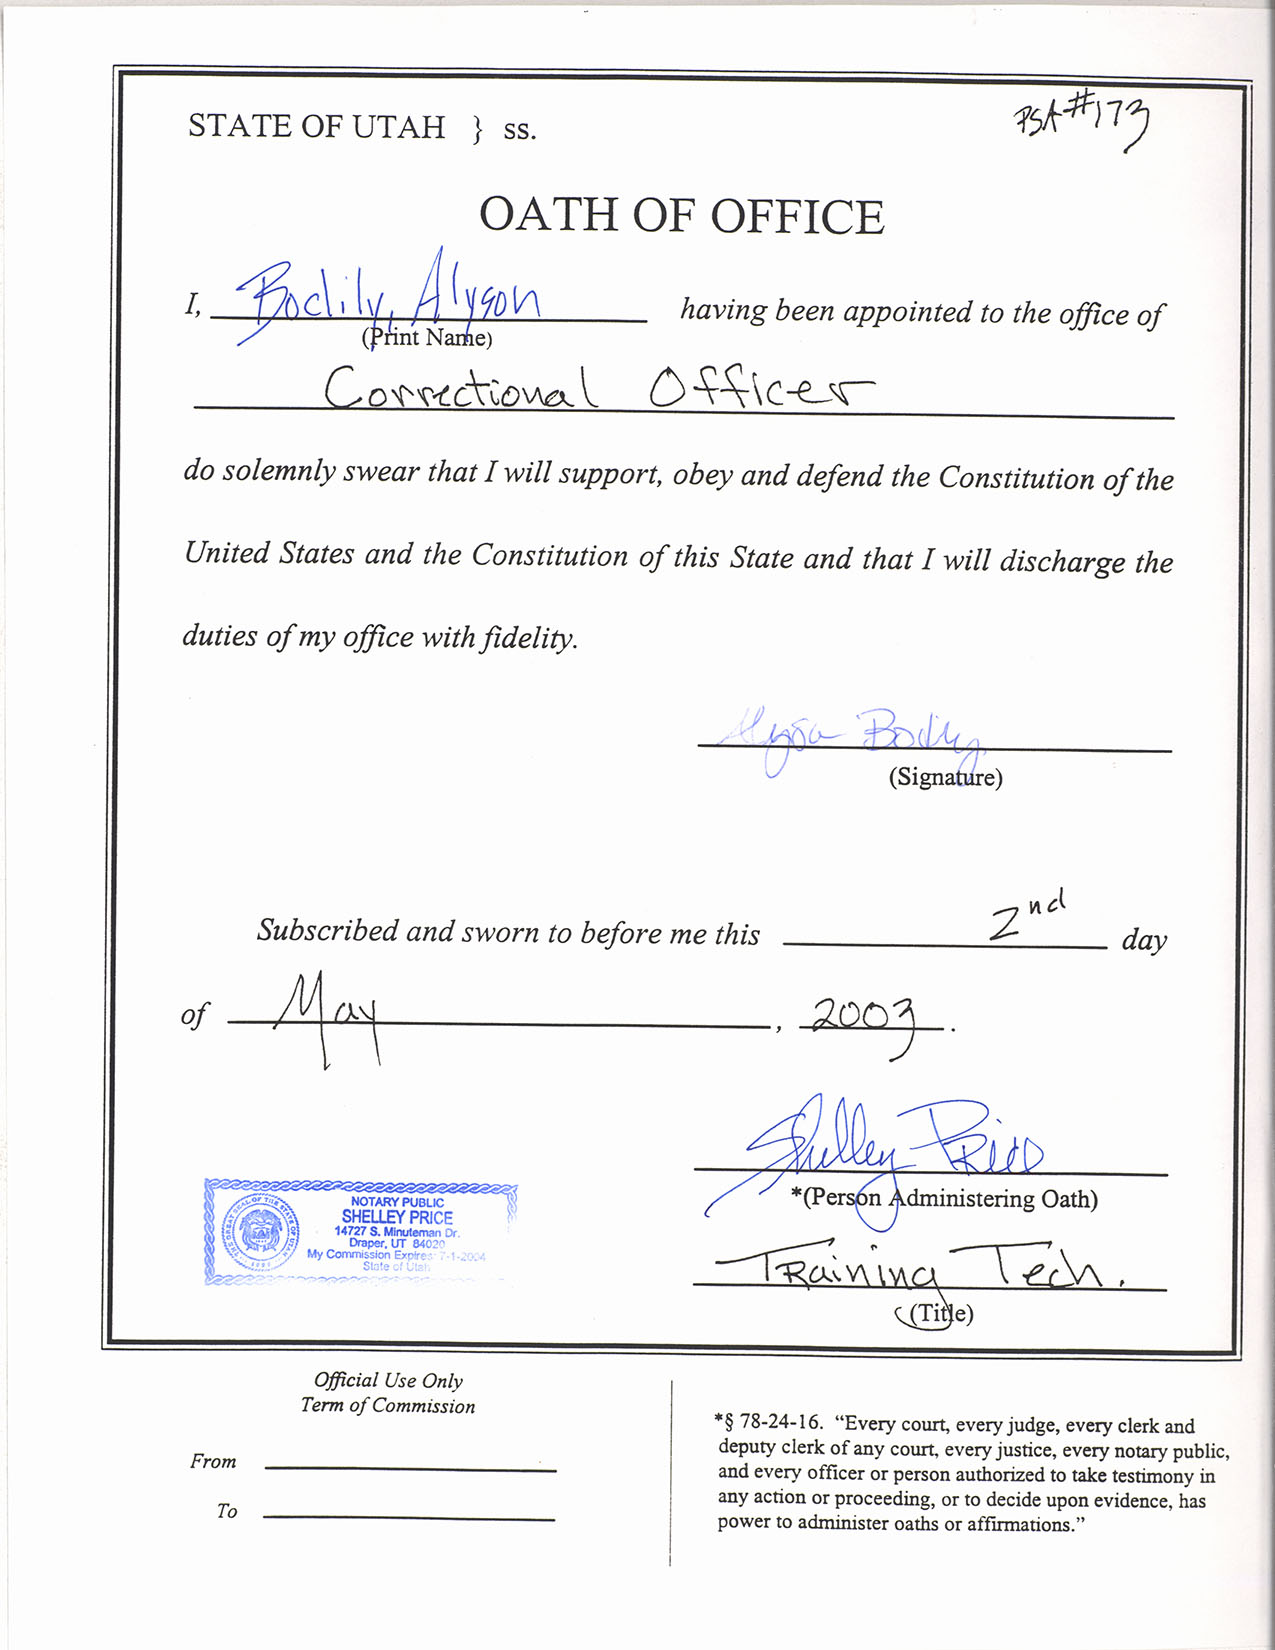 STATE OF UTAH } ss.
PSA #173
OATH OF OFFICE
I, Bodily, Alyson having been appointed to the office of
(Print Name)
Correctional Officer
do solemnly swear that I will support, obey and defend the Constitution of the
United States and the Constitution of this State and that I will discharge the
duties of my office with fidelity.
Alyson Bodily
(Signature)
Subscribed and sworn to before me this 2nd day
of May, 2003.
Shelley Price
*(Person Administering Oath)
Training Tech.
(Title)
THE GREAT SEAL OF THE STATE OF UTAH
1896
NOTARY PUBLIC
SHELLEY PRICE
14727 S. Minuteman Dr.
Draper, UT 84020
My Commission Expires 7-1-2004
State of Utah
Official Use Only
Term of Commission
From
To
*§ 78-24-16. “Every court, every judge, every clerk and
deputy clerk of any court, every justice, every notary public,
and every officer or person authorized to take testimony in
any action or proceeding, or to decide upon evidence, has
power to administer oaths or affirmations.”